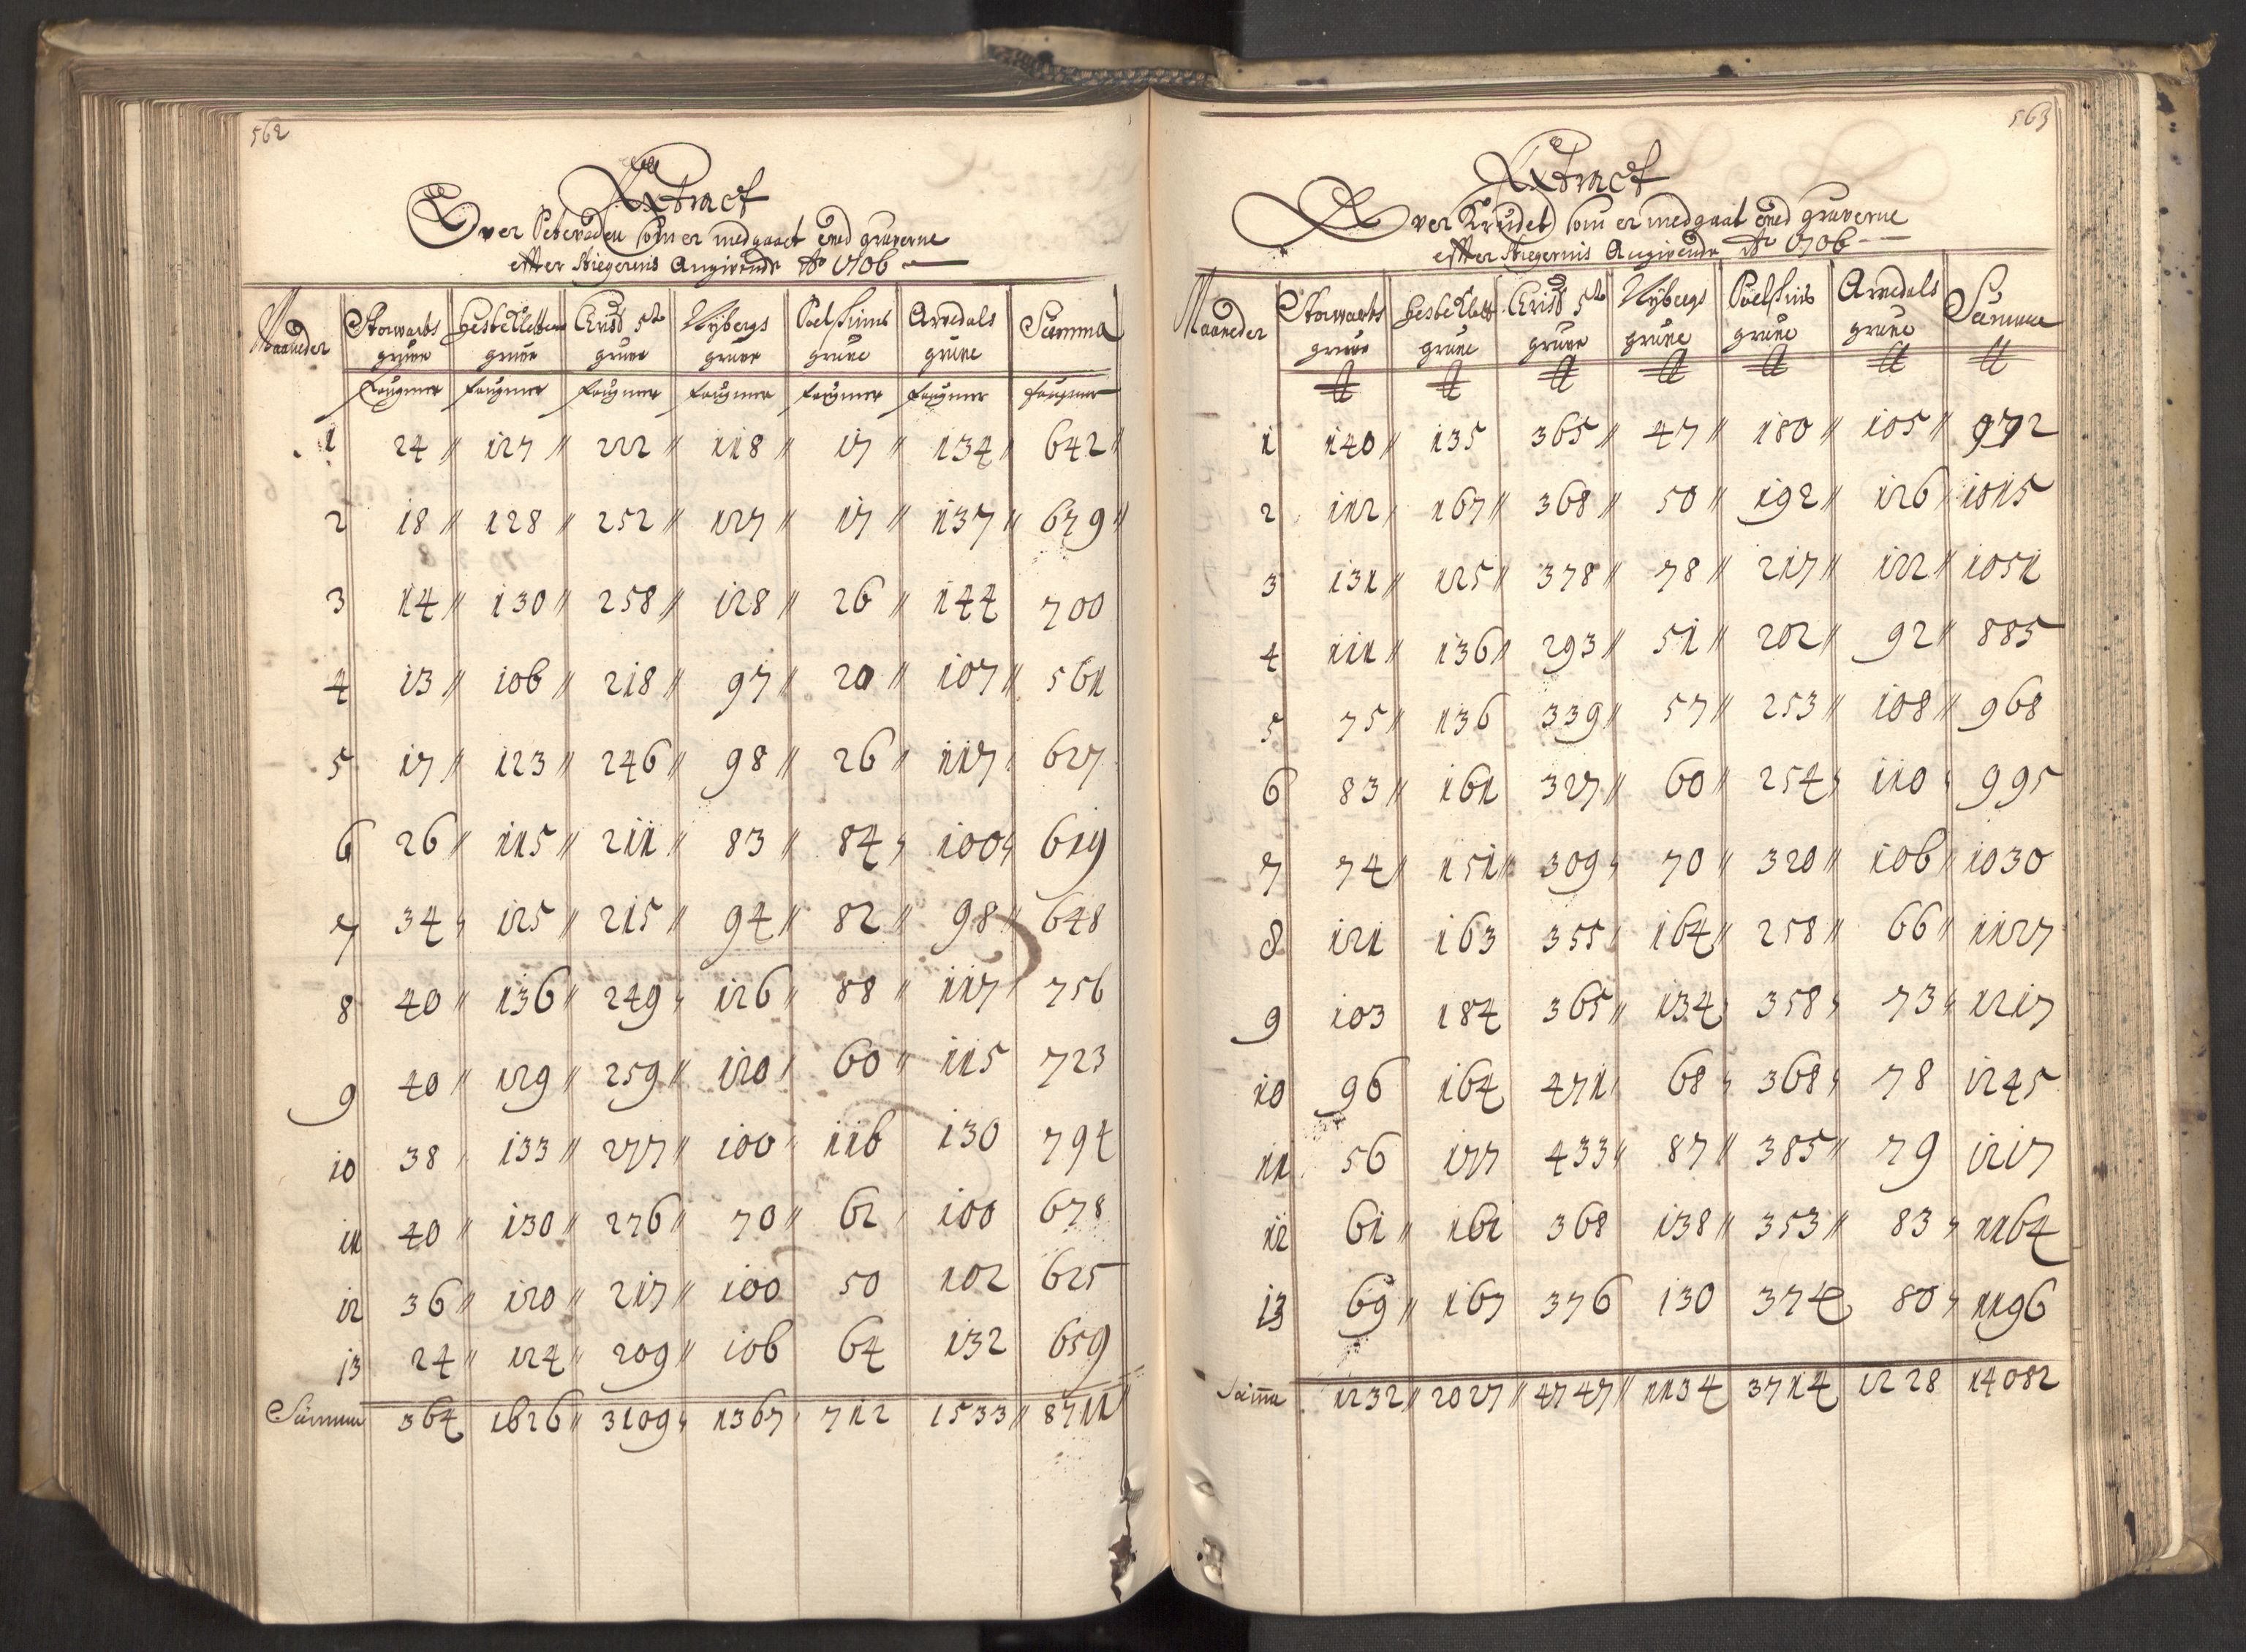 562
Extract
Over Setveden som er medgaaet ved gruverne
effter Stiegernis Angivende Ao 1706
Maaneder Storvarts gruve Hesteklettens gruve Crist 5te gruve Nybergs gruve Poelsinns gruve Arvedals gruve Summa
faugner faugner faugner faugner faugner faugner faugner
1 24 " 127 " 222 " 118 " 17 " 134 " 642 "
2 18 " 128 " 252 " 127 " 17 " 137 " 679 "
3 14 " 130 " 258 " 128 " 26 " 144 700
4 13 " 106 " 218 " 97 " 20 " 107 " 561
5 17 " 123 " 246 " 98 " 26 " 117 " 627
6 26 " 115 " 211 " 83 " 84 " 100 " 619
7 34 " 125 " 215 " 94 " 82 " 98 " 648
8 40 " 136 " 249 " 126 " 88 " 117 " 756
9 40 " 129 " 259 " 120 " 60 " 115 723
10 38 " 133 " 277 " 100 " 116 130 794
11 40 " 130 " 276 " 70 " 62 " 100 678
12 36 " 120 " 217 " 100 50 102 625
13 24 " 124 " 209 " 106 64 132 659
Summa 364 1626 " 3109 " 1367 " 712 1533 " 8711 "
563
Extract
Over Krudet som er medgaat ved gruverne
effter Stiegernis Angivende Ao 1706
Maaneder Storvarts gruve Hesteklett gruve Crist 5te gruve Nybergs gruve Poelsinns gruve Arvedals gruve Summa
℔ ℔ ℔ ℔ ℔ ℔ ℔
1 140 " 135 365 " 47 " 180 " 105 " 972
2 112 " 167 " 368 " 50 " 192 " 126 " 1015
3 131 " 125 " 378 " 78 " 217 " 122 " 1051
4 111 " 136 " 293 " 51 " 202 " 92 " 885
5 75 " 136 339 " 57 " 253 " 108 " 968
6 83 " 161 327 " 60 " 254 " 110 " 995
7 74 " 151 " 309 " 70 " 320 " 106 " 1030
8 121 163 355 " 164 " 258 " 66 " 1127
9 103 184 365 " 134 " 358 " 73 " 1217
10 96 164 471 " 68 " 368 " 78 1245
11 56 177 433 " 87 " 385 " 79 1217
12 61 " 161 368 138 " 353 " 83 " 1164
13 69 " 167 376 130 374 80 " 1196
Suma 1232 " 2027 " 4747 " 1134 3714 1228 14082